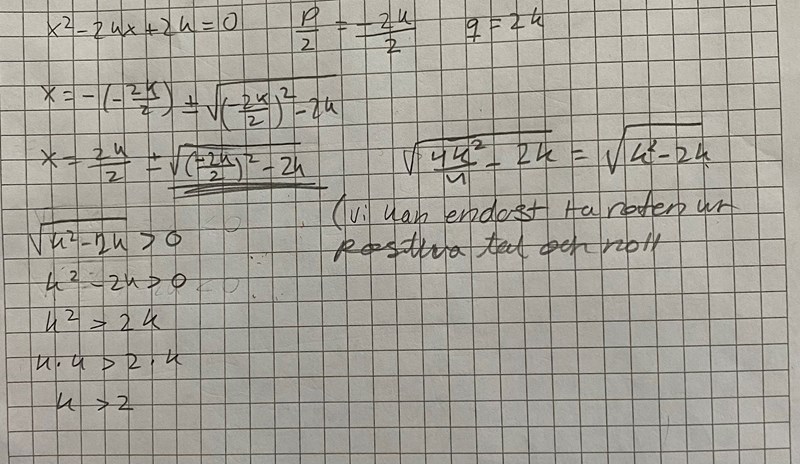 x² - 2kx + 2k = 0    p/2 = -2k/2    q = 2k
x = -(-2k/2) ± √((-2k/2)² - 2k)
x = 2k/2 ± √((-2k/2)² - 2k)    √(4k²/4 - 2k) = √(k² - 2k)
(vi kan endast ta roten ur
√(k² - 2k) > 0    positiva tal och noll
k² - 2k > 0
k² > 2k
k · k > 2 · k
k > 2